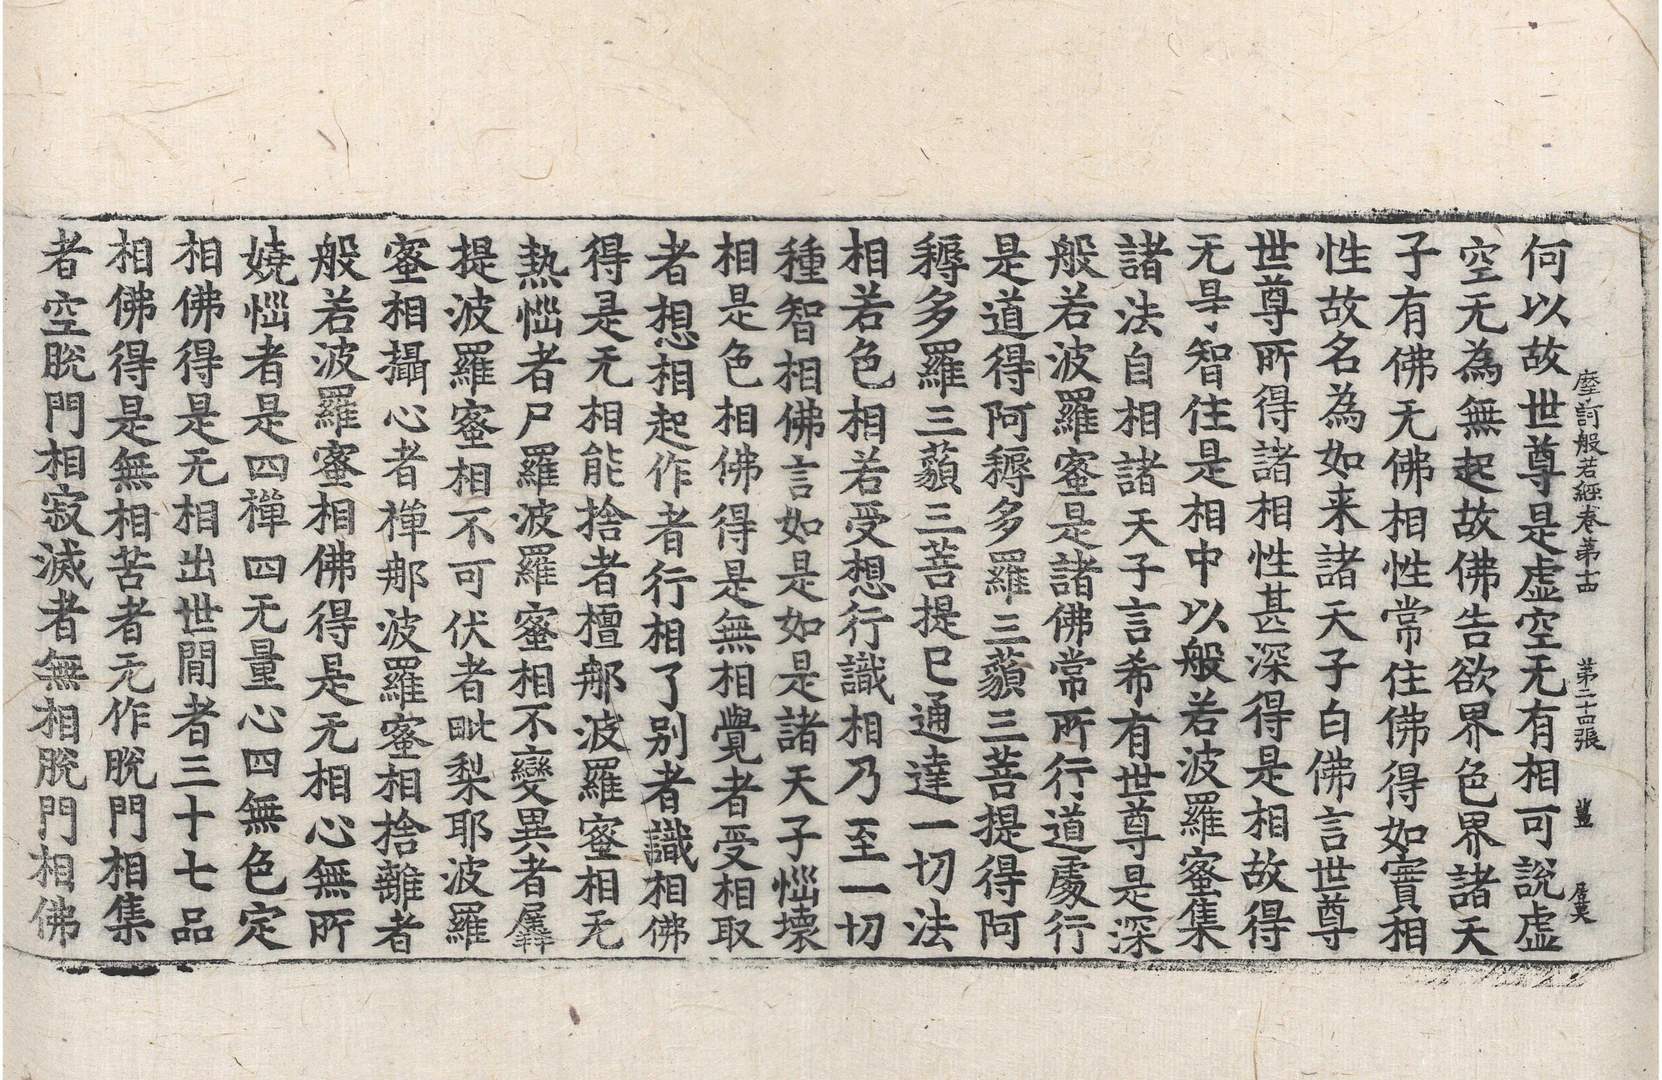 摩訶般若經卷第十四　第二十四張　薑
何以故世尊是虛空无有相可說虛
空无為無起故佛告欲界色界諸天
子有佛无佛相性常住佛得如實相
性故名為如来諸天子白佛言世尊
世尊所得諸相性甚深得是相故得
无㝵智住是相中以般若波羅蜜集
諸法自相諸天子言希有世尊是深
般若波羅蜜是諸佛常所行道處行
是道得阿耨多羅三藐三菩提得阿
耨多羅三藐三菩提已通達一切法
相若色相若受想行識相乃至一切
種智相佛言如是如是諸天子惱壞
相是色相佛得是無相覺者受相取
者想相起作者行相了别者識相佛
得是无相能捨者檀那波羅蜜相无
熱惱者尸羅波羅蜜相不變異者羼
提波羅蜜相不可伏者毗梨耶波羅
蜜相攝心者禪那波羅蜜相捨離者
般若波羅蜜相佛得是无相心無所
嬈惱者是四禪四无量心四無色定
相佛得是无相出世間者三十七品
相佛得是無相苦者无作脫門相集
者空脫門相寂滅者無相脫門相佛